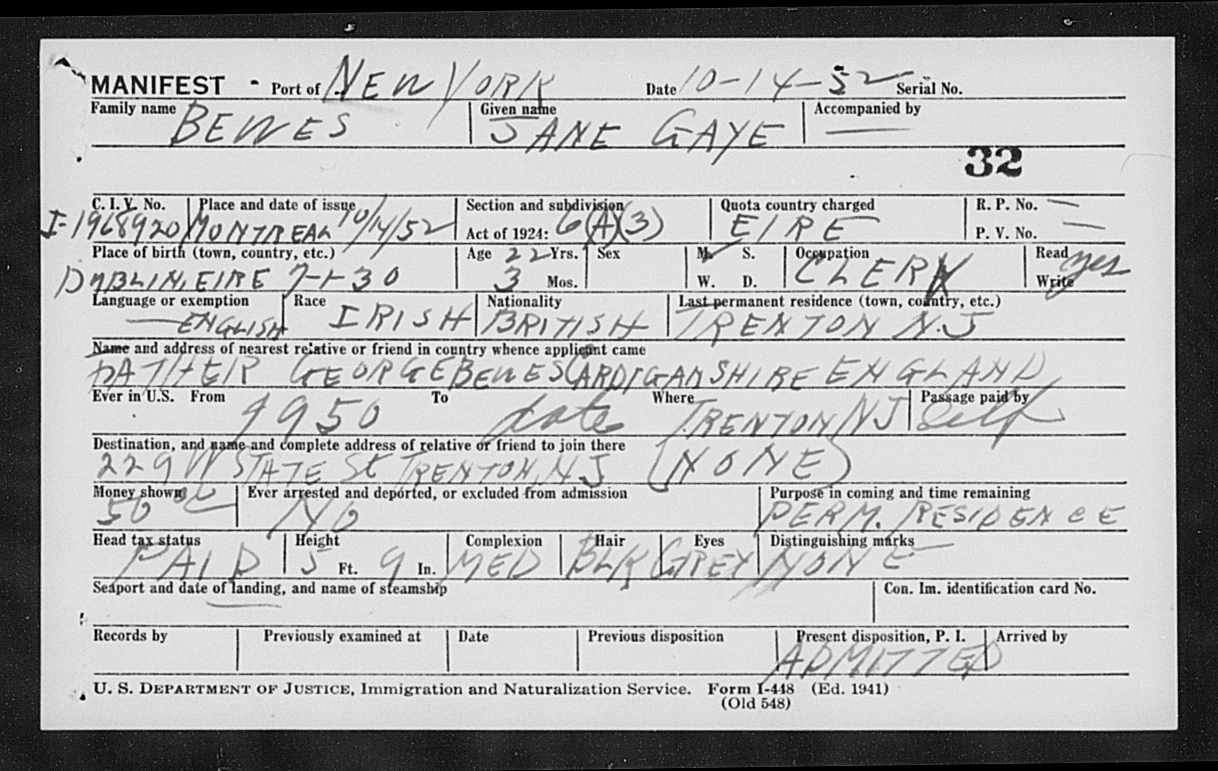 MANIFEST - Port of NEW YORK Date 10-14-52 Serial No.
Family name BEWES Given name JANE GAYE Accompanied by —
32
C. I. V. No. I-1968920 Place and date of issue MONTREAL 10/14/52 Section and subdivision Act of 1924: 6(A)(3) Quota country charged EIRE R. P. No. — P. V. No. —
Place of birth (town, country, etc.) DUBLIN, EIRE 7-1-30 Age 22 Yrs. 3 Mos. Sex M. S. W. D. Occupation CLERK Read Write yes
Language or exemption — ENGLISH Race IRISH Nationality BRITISH Last permanent residence (town, country, etc.) TRENTON N.J
Name and address of nearest relative or friend in country whence applicant came
FATHER GEORGE BEWES CARDIGANSHIRE ENGLAND
Ever in U.S. From 1950 To date Where TRENTON NJ Passage paid by Self
Destination, and name and complete address of relative or friend to join there
229 W STATE St TRENTON, NJ (NONE)
Money shown 50 Ever arrested and deported, or excluded from admission NO Purpose in coming and time remaining PERM. RESIDENCE
Head tax status PAID Height 5 Ft. 9 In. Complexion MED Hair BLK Eyes GREY Distinguishing marks NONE
Seaport and date of landing, and name of steamship — Con. Im. identification card No.
Records by Previously examined at Date Previous disposition Present disposition, P. I. ADMITTED Arrived by
U. S. DEPARTMENT OF JUSTICE, Immigration and Naturalization Service. Form I-448 (Ed. 1941)
(Old 548)